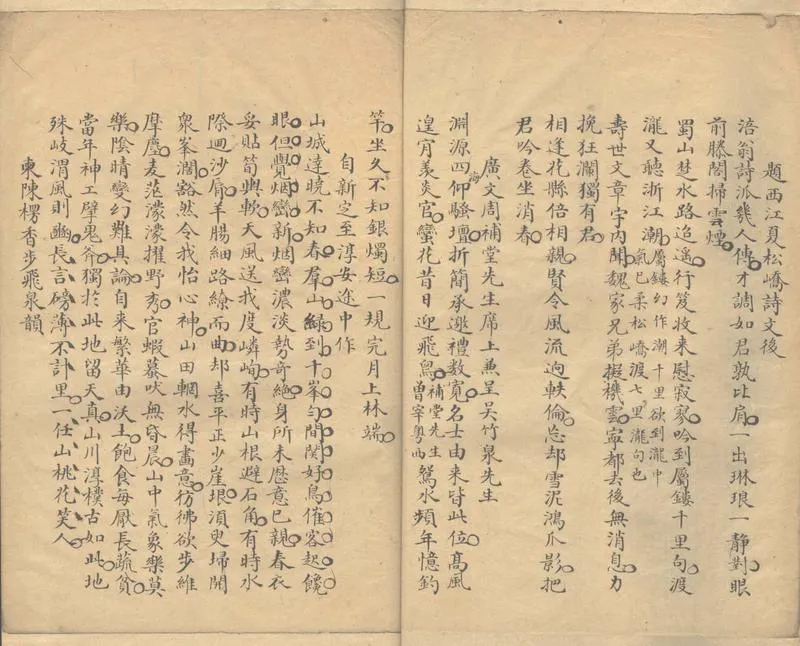 題西江夏松嶠詩文後
涪翁詩派幾人傳才調如君孰比肩一出琳琅一靜對眼
前滕閣掃雲煙
蜀山楚水路迢遙行笈收来慰寂寥吟到屬鏤千里句渡
瀧又聽浙江潮屬鏤幻作潮千里欲到瀧中
氣已柔松嶠渡七里瀧句也
壽世文章宇内聞魏家兄弟掇機雲寧都去後無消息力
挽狂瀾獨有君
相逢花縣倍相親賢令風流逈軼倫忘却雪泥鴻爪影把
君吟卷坐消春
廣文周補堂先生席上兼呈吴竹泉先生
淵源四海仰騷壇折簡承邀禮數寬名士由来皆此位髙風
遑宵羨炎官蠻花昔日迎飛舃補堂先生
曾宰粵西鴛水頻年憶釣
竿坐久不知銀燭短一規完月上林端
自新定至淳安途中作
山城達曉不知春羣山綠到十峯勻間関好鳥催客起饞
眼但覺烟巒新烟巒濃淡勢奇絶身所未歴意已親春衣
妥貼筍輿軟天風送我度嶙峋有時山根避石角有時水
際迴沙脣羊腸細路繚而曲却喜平正少崖垠湏臾埽開
衆峯濶豁然令我怡心神山田輞水得畫意彷彿欲步維
摩塵麦莐濛濛擢野秀官蝦蟇吠無昏晨山中氣象樂莫
樂陰晴變幻難具論自来繁華由沃土飽食每厭長蔬貧
當年神工擘鬼斧獨扵此地留天真山川淳樸古如此地
殊岐渭風則豳長言磅薄不計里一任山桃花笑人
東陳楞香步飛泉韻